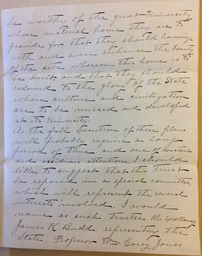 be worthy of the great University
whose material home they are to
provide for that they should harmonize
with and even enhance the beauty
of the site whereon this home is to
be built and that they should
redound to the glory of the State
whose culture and civilization
are to be nursed and developed
at its University.
As the full execution of these plans
will probably require a long
period of time and one of besides
and assiduous attention, I should
like to suggest that this trust
be reposed in a special committee
which will represent the several
interests involved. I would
name as such trustees His Excellency
James H. Budd representing the
State, Professor Wm Carey Jones